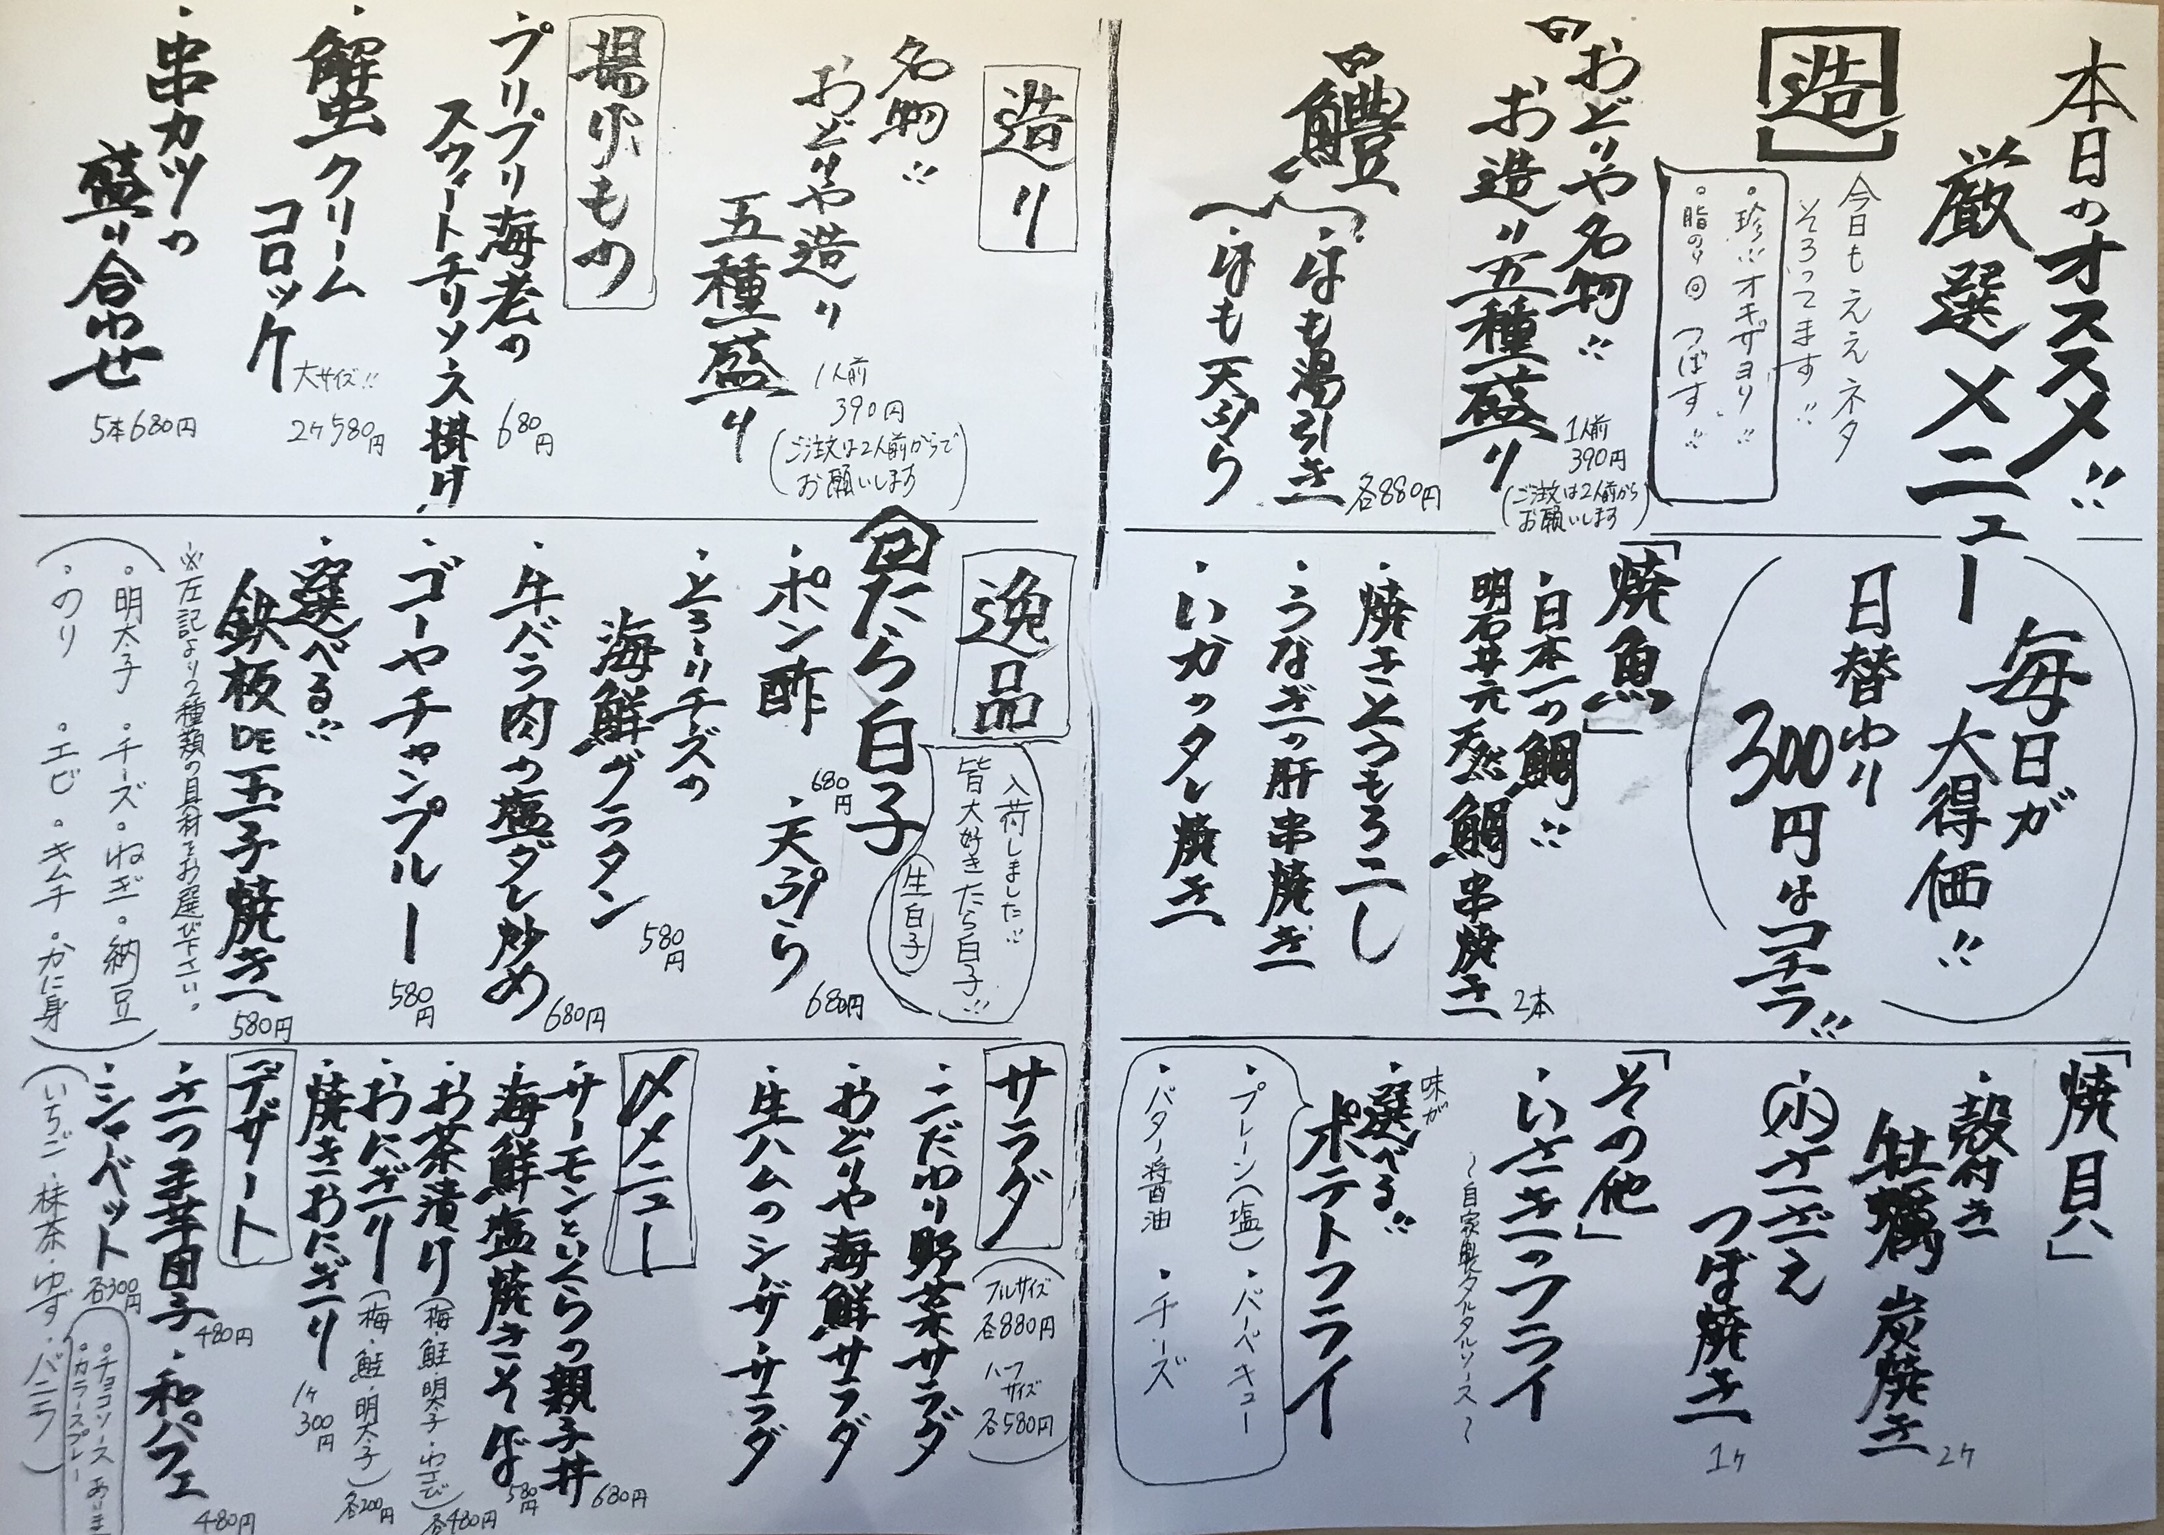 本日のオススメ!!
厳選メニュー
造
今日もええネタ
そろってます!!
・珍!! オキザヨリ!!
・脂のり◎ つばす!!
おどりや名物!!
お造り五種盛り
1人前
390円
(ご注文は2人前から
お願いします)
鱧
・はも湯引き
・はも天ぷら
各880円
毎日が
大得価!!
日替わり
300円はコチラ!!
「焼魚」
・日本一の鯛!!
明石井元天然鯛串焼き
2本
・焼きとうもろこし
・うなぎの肝串焼き
・いかのタレ焼き
「焼貝」
・殻付き
牡蠣炭焼き
2ヶ
・小さざえ
つぼ焼き
1ヶ
「その他」
・いさきのフライ
〜自家製タルタルソース〜
味が
・選べる!!
ポテトフライ
・プレーン(塩)・バーベキュー
・バター醤油 ・チーズ
造り
名物!!
おどりや造り
五種盛り
1人前
390円
(ご注文は2人前からで
お願いします)
揚げもの
・プリプリ海老の
スウィートチリソース掛け
680円
・蟹クリーム
コロッケ
大サイズ!!
2ヶ580円
・串カツの
盛り合わせ
5本680円
逸品
入荷しました!!
皆大好きたら白子!!
生白子
たら白子
・ポン酢
680円
・天ぷら
680円
・とろ〜りチーズの
海鮮グラタン
580円
・牛バラ肉の塩ダレ炒め
680円
・ゴーヤチャンプルー
580円
・選べる!!
鉄板DE玉子焼き
580円
※左記より2種類の具材をお選び下さい。
(・明太子 ・チーズ・ねぎ・納豆
・のり ・エビ・キムチ・かに身)
サラダ
(フルサイズ
各880円
ハーフ
サイズ
各580円)
・こだわり野菜サラダ
・おどりや海鮮サラダ
・生ハムのシーザーサラダ
〆メニュー
・サーモンといくらの親子丼
680円
・海鮮塩焼きそば
580円
・お茶漬け(梅・鮭・明太子・わさび)
各480円
・おにぎり(梅・鮭・明太子)
各200円
・焼きおにぎり
1ヶ
300円
デザート
・さつま芋団子
480円
・和パフェ
480円
・シャーベット
各300円
(いちご・抹茶・ゆず・バニラ)
・チョコソース
・カラースプレー
あります